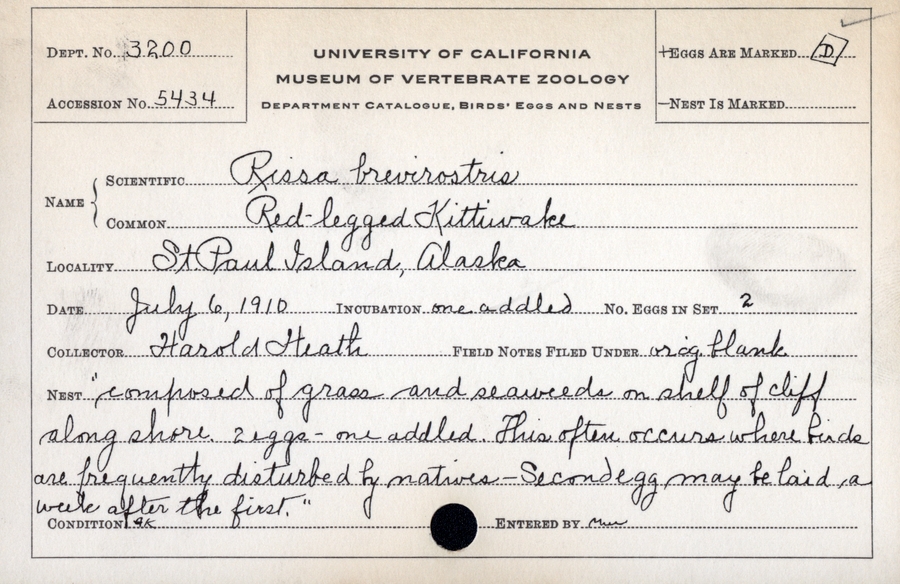 DEPT. No. 3200
ACCESSION No. 5434
UNIVERSITY OF CALIFORNIA
MUSEUM OF VERTEBRATE ZOOLOGY
DEPARTMENT CATALOGUE, BIRDS' EGGS AND NESTS
+EGGS ARE MARKED D
—NEST IS MARKED
NAME
SCIENTIFIC Rissa brevirostris
COMMON Red-legged Kittiwake
LOCALITY St Paul Island, Alaska
DATE July 6, 1910 INCUBATION one addled No. EGGS IN SET 2
COLLECTOR Harold Heath FIELD NOTES FILED UNDER orig blank
NEST "composed of grass and seaweeds on shelf of cliff
along shore. 2 eggs - one addled. This often occurs where birds
are frequently disturbed by natives - Second egg may be laid a
week after the first."
CONDITION ENTERED BY